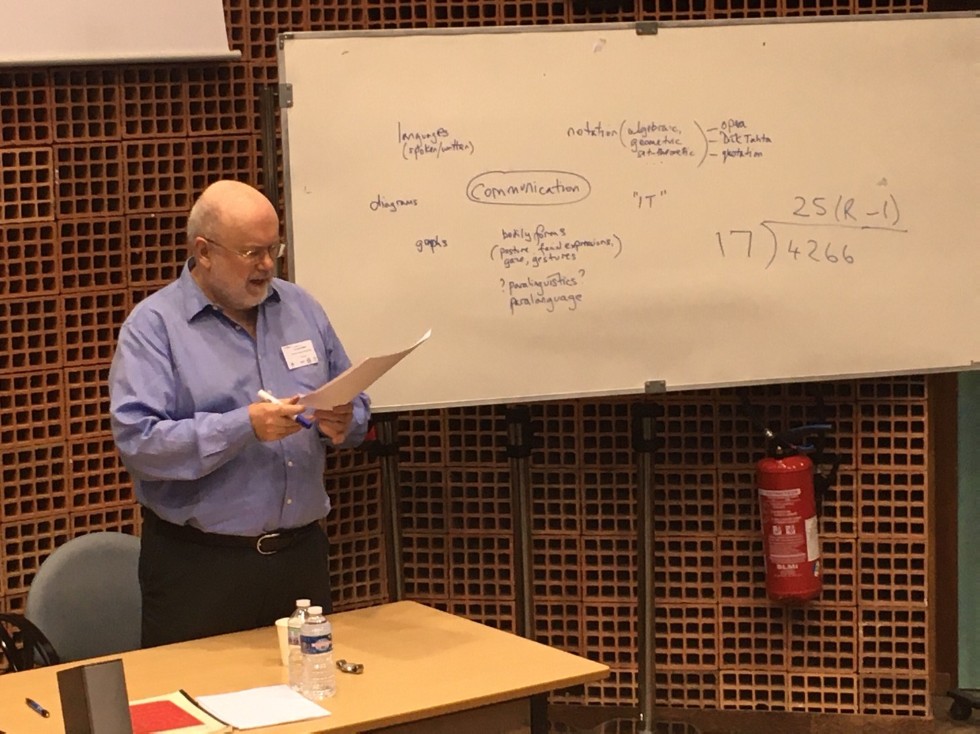 languages
(spoken/written)
notation (algebraic,
geometric
arithmetic)
– opera
– Dick Tahta
– quotation
Communication
diagrams
"IT"
graphs
bodily forms
(posture, facial expressions,
gaze, gestures)
? paralinguistics ?
paralanguage
25 (R -1)
17) 4266
BLMI